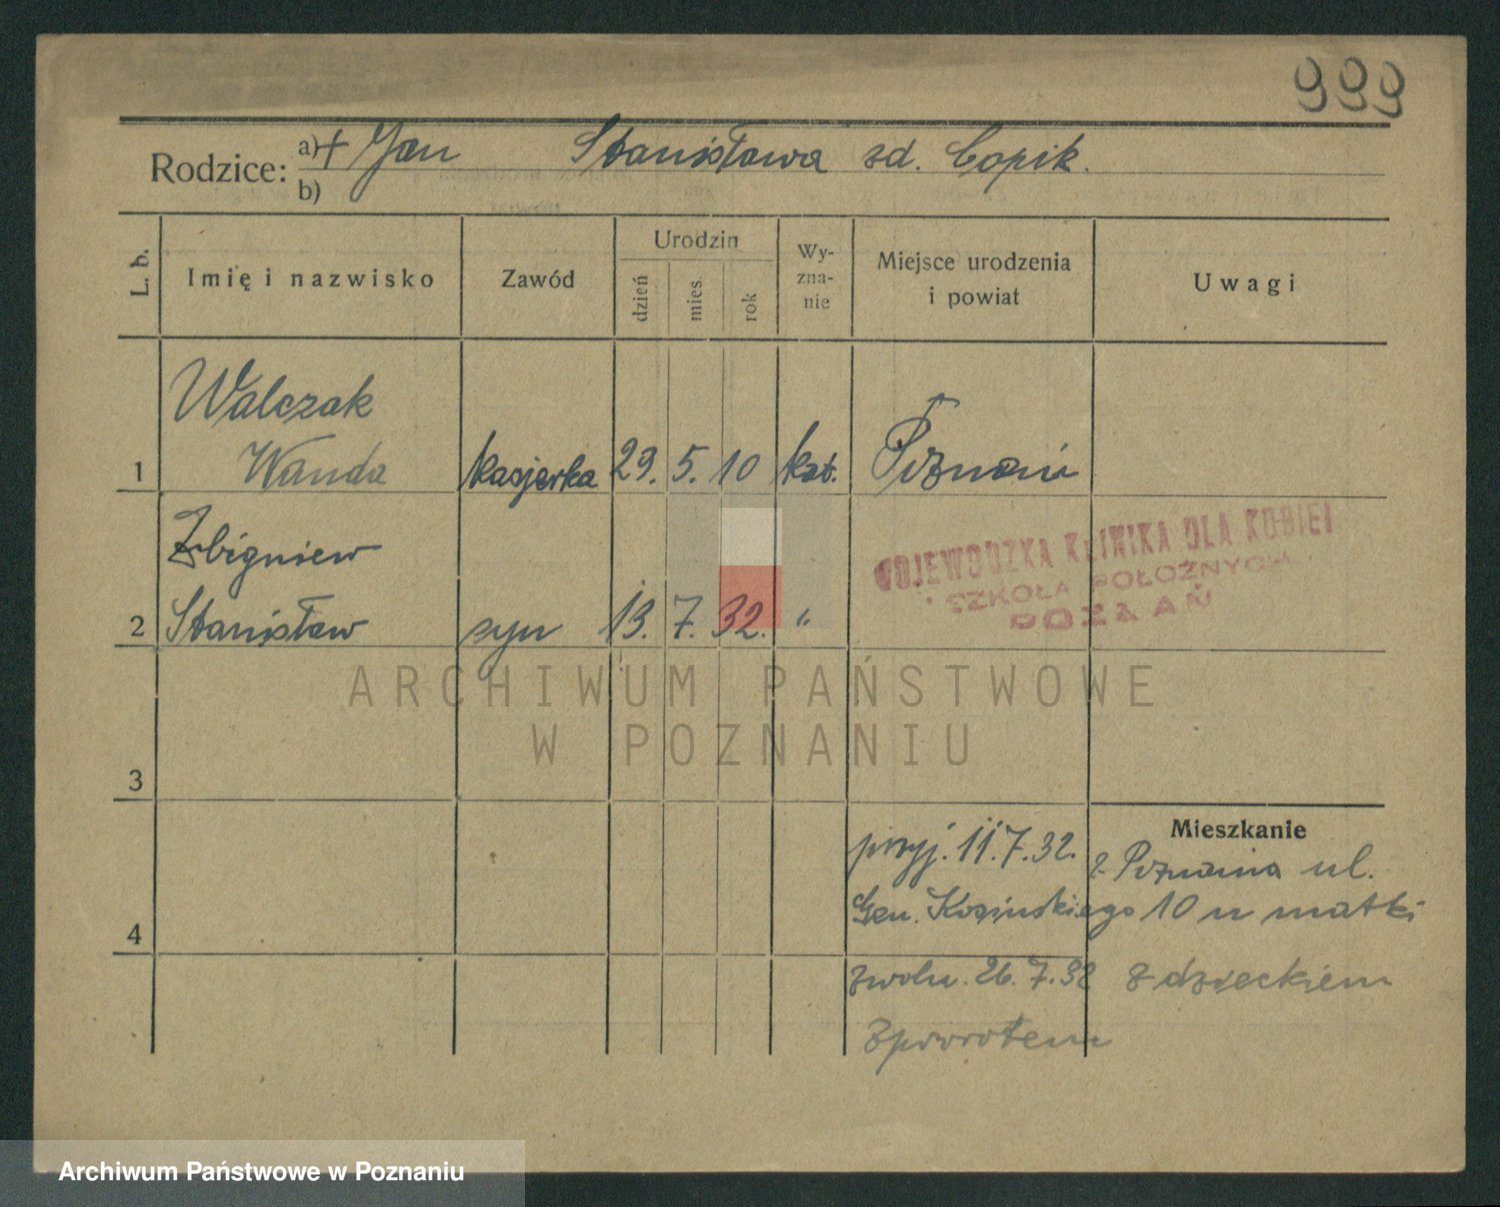 999
Rodzice: a) + Jan Stanisława zd. Copik.
b)
L. b. Imię i nazwisko Zawód Urodzin dzień mies. rok Wy-zna-nie Miejsce urodzenia i powiat Uwagi
Walczak
1 Wanda kasjerka 29. 5. 10 kat. Poznań
Zbigniew
2 Stanisław syn 13. 7. 32. "
WOJEWÓDZKA KLINIKA DLA KOBIET
SZKOŁA POŁOŻNYCH
POZNAŃ
ARCHIWUM PAŃSTWOWE
W POZNANIU
3
Mieszkanie
przyj. 11.7.32. z Poznania ul.
Gen. Kosińskiego 10 u matki
4
zwoln. 26.7.32 z dzieckiem
zpowrotem
Archiwum Państwowe w Poznaniu